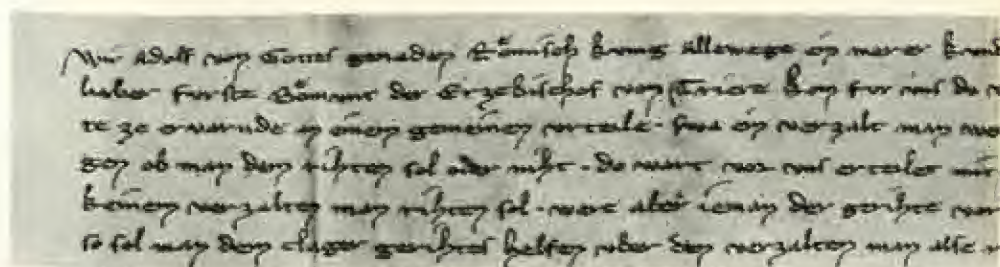 Wir Adolf von Gottes genaden Romisch kunig allewege ein merer
lieber furste Bomunt der Erzebischof von Triere kan fur uns do
te ze ervarnde an einem gemeinen vrteile. swa ein verzalt man
gen ob man dem rihten sol oder niht. do wart vor uns erteilet mit
keinem verzalten man rihten sol. were aber ieman der gerihte
so sol man dem clager gerihtes helfen uber den verzalten man alse